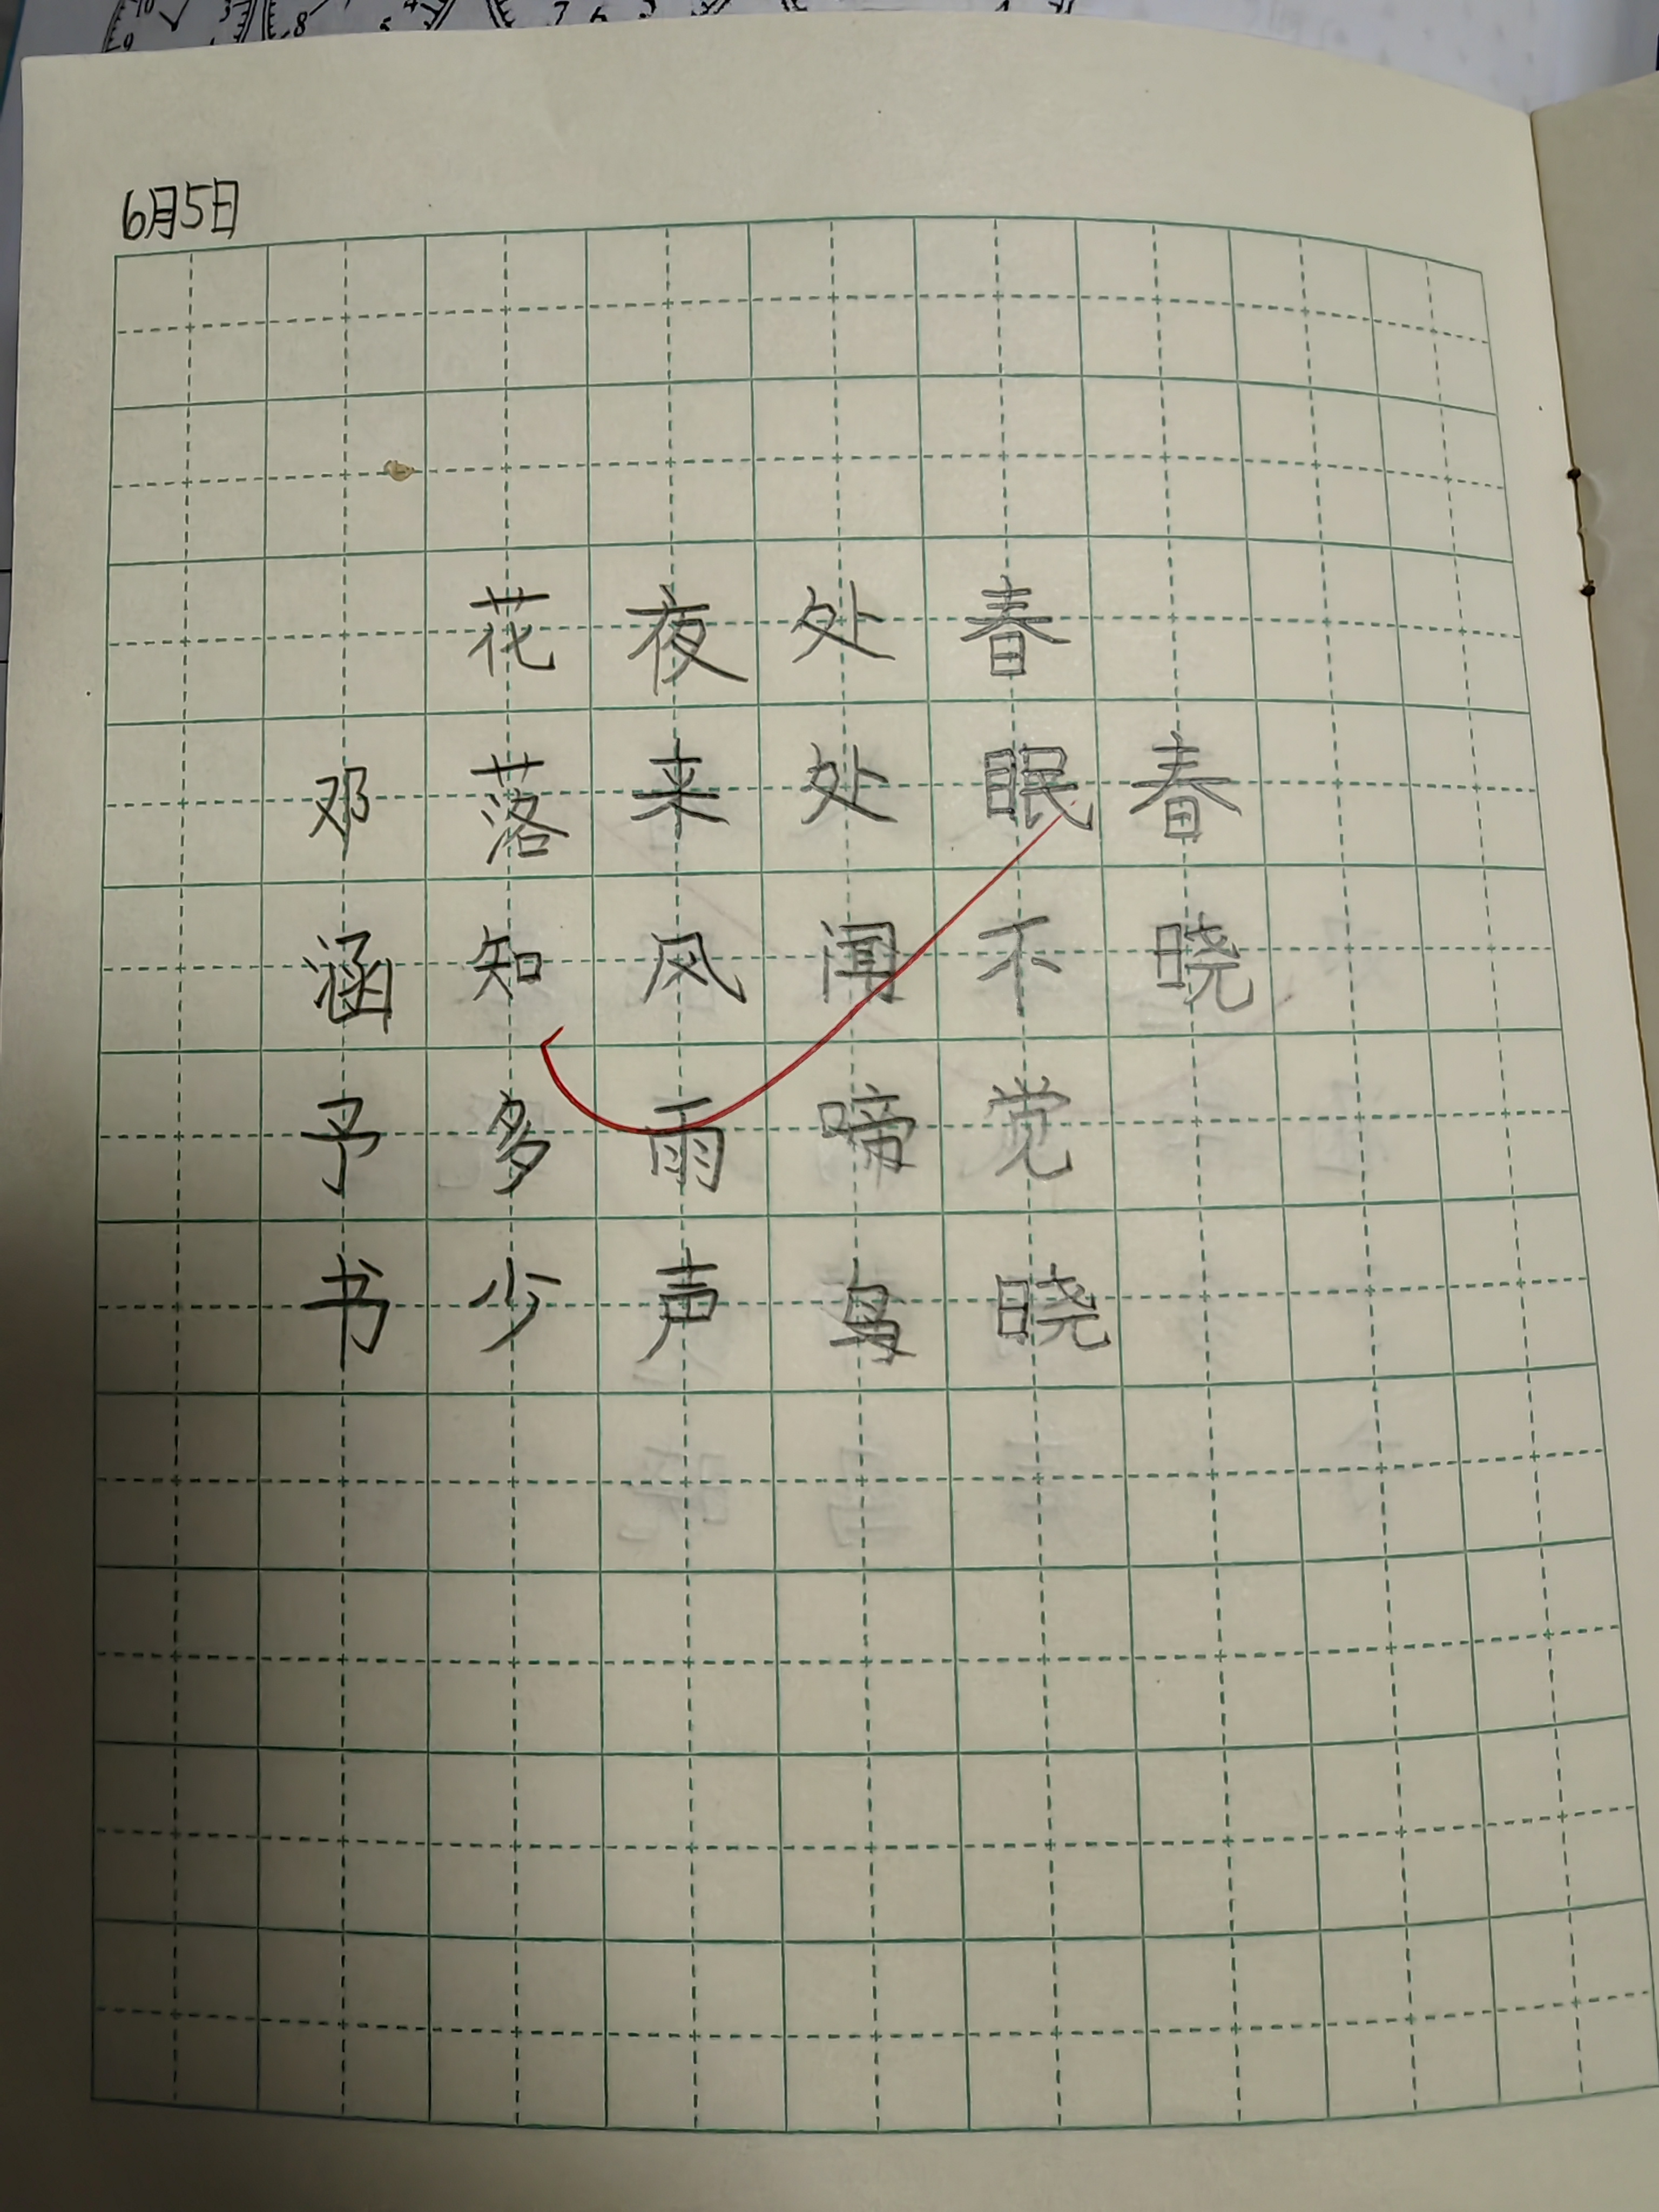 6月5日
春晓
春眠不觉晓
处处闻啼鸟
夜来风雨声
花落知多少
邓涵予书